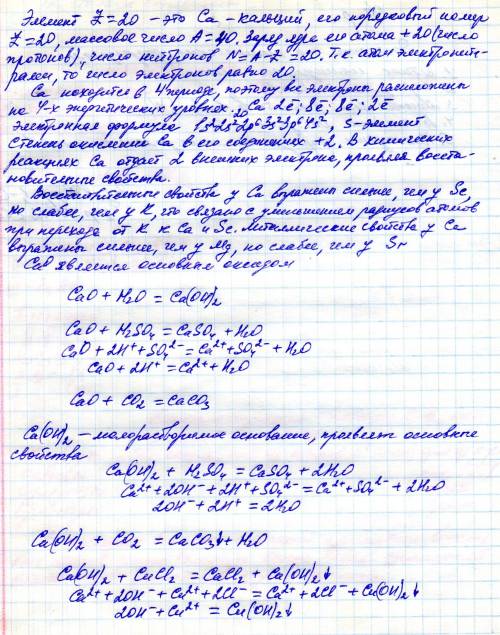 Элемент Z=20 – это Ca – кальций, его порядковый номер
Z=20, массовое число A=40, Заряд ядра его атома +20 (число
протонов), число нейтронов N=A-Z=20. Т.к. атом электроней-
трален, то число электронов равно 20.
Ca находится в 4 периоде, поэтому все электроны расположены
на 4-х энергетических уровнях. 20Ca 2ē; 8ē; 8ē; 2ē
Электронная формула 1s²2s²2p⁶3s²3p⁶4s², S-элемент
Степень окисления Ca в его соединениях +2. В химических
реакциях Ca отдает 2 внешних электрона, проявляя восста-
новительные свойства.
Восстановительные свойства у Ca выражены сильнее, чем у Sc,
но слабее, чем у K, что связано с уменьшением радиусов атомов
при переходе от K к Ca и Sc. Металлические свойства у Ca
выражены сильнее, чем у Mg, но слабее, чем у Sr
CaO является основным оксидом
CaO + H₂O = Ca(OH)₂
CaO + H₂SO₄ = CaSO₄ + H₂O
CaO + 2H⁺ + SO₄²⁻ = Ca²⁺ + SO₄²⁻ + H₂O
CaO + 2H⁺ = Ca²⁺ + H₂O
CaO + CO₂ = CaCO₃
Ca(OH)₂ – малорастворимое основание, проявляет основные
свойства
Ca(OH)₂ + H₂SO₄ = CaSO₄ + 2H₂O
Ca²⁺ + 2OH⁻ + 2H⁺ + SO₄²⁻ = Ca²⁺ + SO₄²⁻ + 2H₂O
2OH⁻ + 2H⁺ = 2H₂O
Ca(OH)₂ + CO₂ = CaCO₃↓ + H₂O
Ca(OH)₂ + CuCl₂ = CaCl₂ + Cu(OH)₂↓
Ca²⁺ + 2OH⁻ + Cu²⁺ + 2Cl⁻ = Ca²⁺ + 2Cl⁻ + Cu(OH)₂↓
2OH⁻ + Cu²⁺ = Cu(OH)₂↓